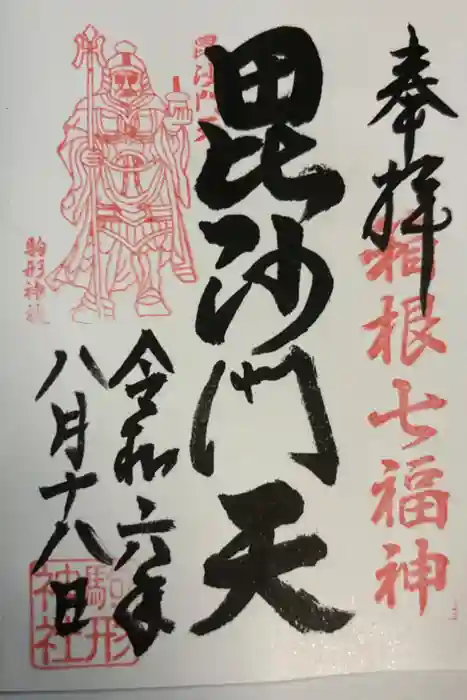 奉拝
箱根七福神
毘沙門天
毘沙門天
駒形神社
令和六年
八月十八日
駒形
神社